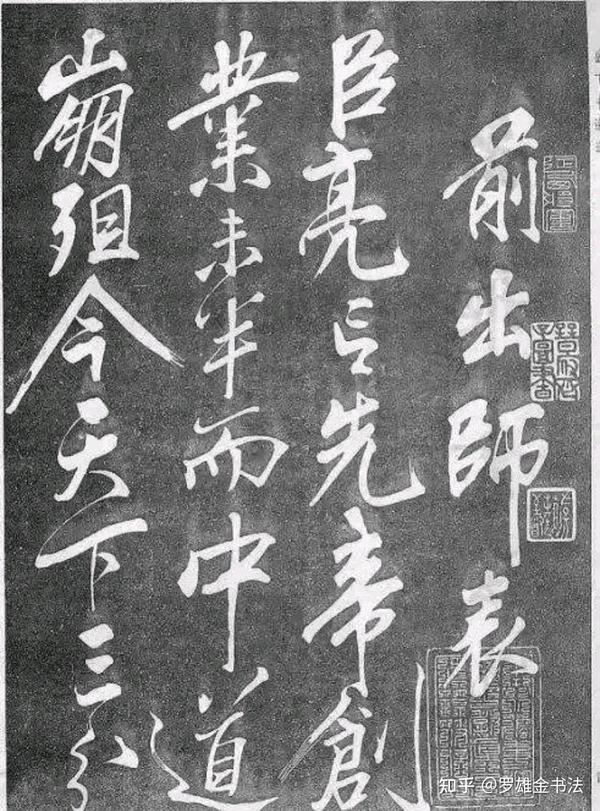 前出師表
臣亮言先帝創
業未半而中道
崩殂今天下三分
知乎 @罗雄金书法